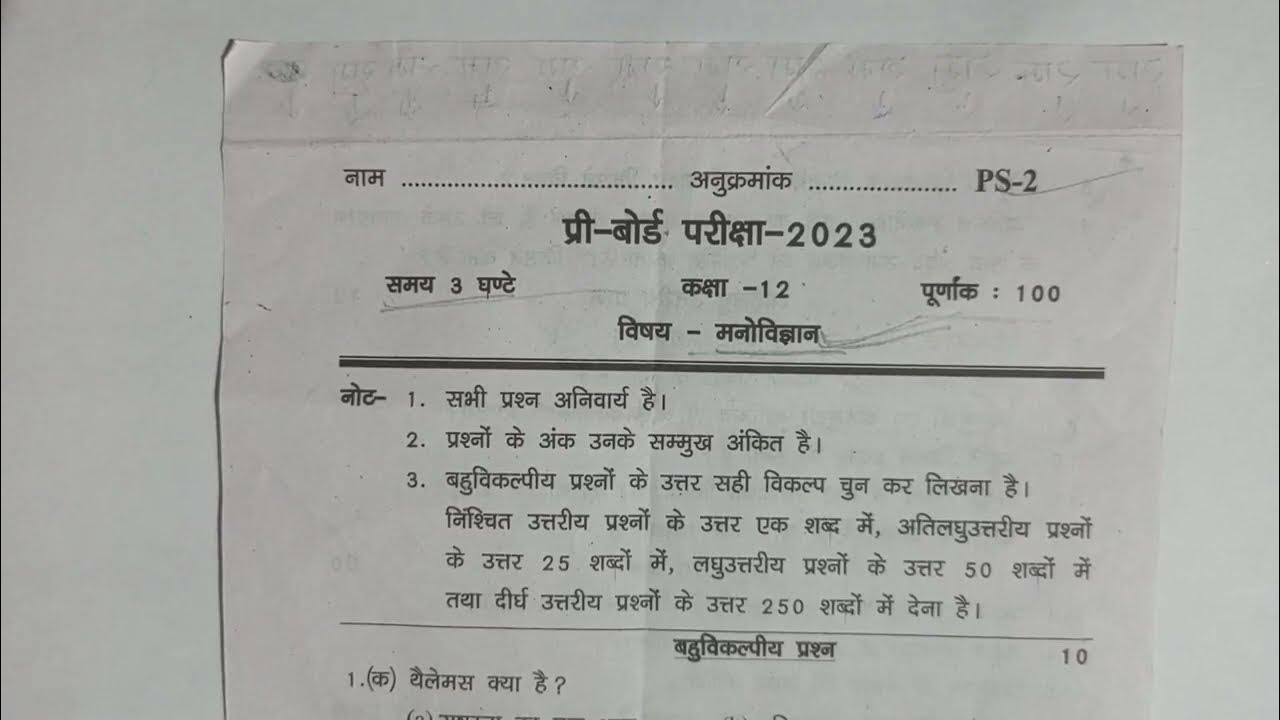 नाम ........................................ अनुक्रमांक ....................... PS-2
प्री-बोर्ड परीक्षा-2023
समय 3 घण्टे कक्षा -12 पूर्णांक : 100
विषय - मनोविज्ञान
नोट- 1. सभी प्रश्न अनिवार्य है।
2. प्रश्नों के अंक उनके सम्मुख अंकित है।
3. बहुविकल्पीय प्रश्नों के उत्तर सही विकल्प चुन कर लिखना है।
निश्चित उत्तरीय प्रश्नों के उत्तर एक शब्द में, अतिलघुउत्तरीय प्रश्नों
के उत्तर 25 शब्दों में, लघुउत्तरीय प्रश्नों के उत्तर 50 शब्दों में
तथा दीर्घ उत्तरीय प्रश्नों के उत्तर 250 शब्दों में देना है।
बहुविकल्पीय प्रश्न 10
1.(क) थैलेमस क्या है?